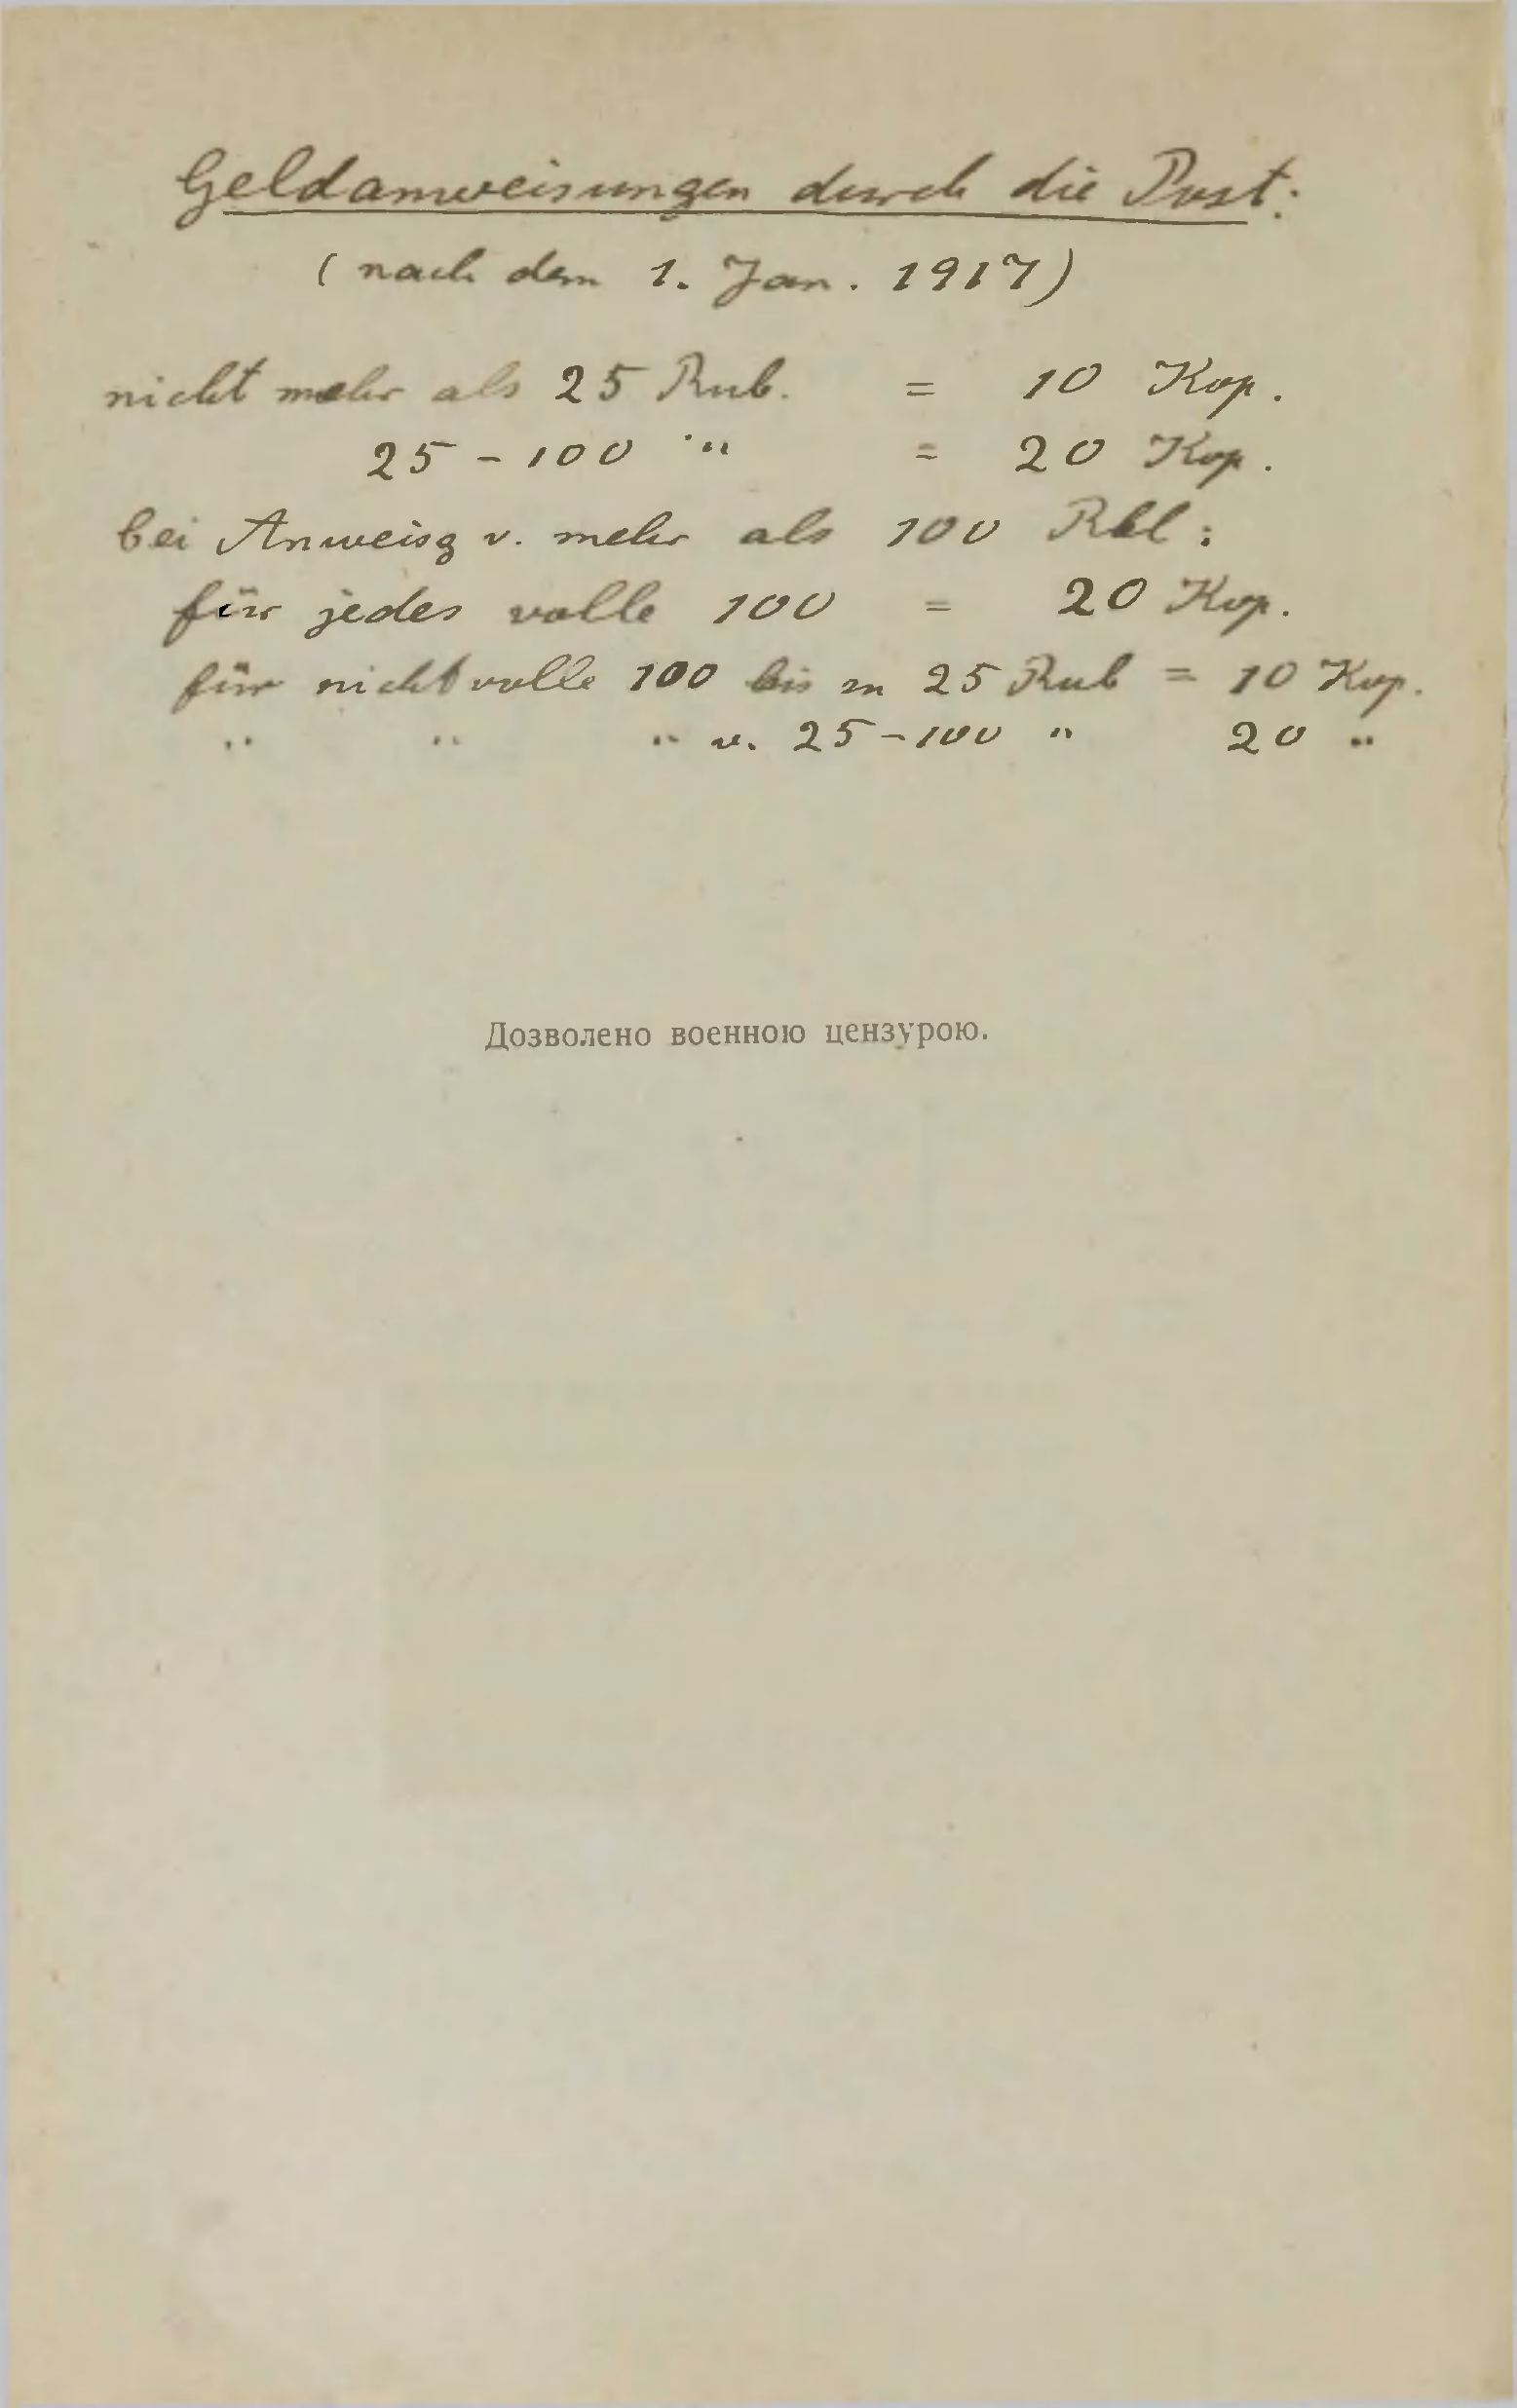 Geldanweisungen durch die Post:
( nach dem 1. Jan. 1917)
nicht mehr als 25 Rub. = 10 Kop.
25 - 100 " = 20 Kop.
bei Anweisg v. mehr als 100 Rbl:
für jedes volle 100 = 20 Kop.
für nicht volle 100 bis zu 25 Rub = 10 Kop.
" " " v. 25-100 " 20 "
Дозволено военною цензурою.